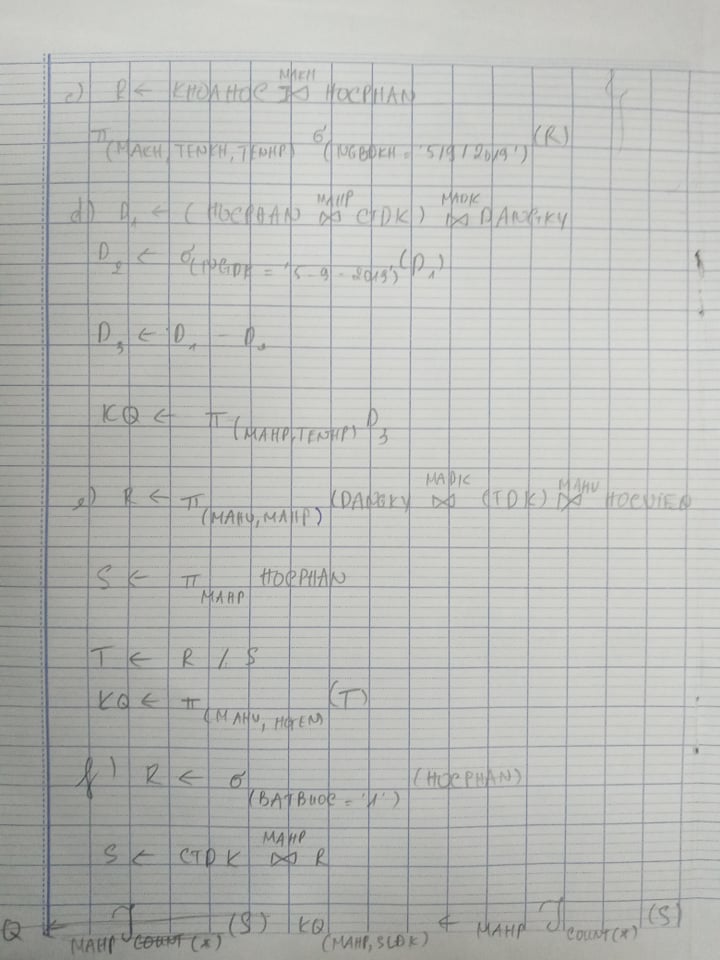 c) R ← KHOAHOC ⋈ MAKH HOCPHAN
π (MAKH, TENKH, TENHP) σ (NGBDKH = '5/9/2019') (R)
d) D₁ ← (HOCPHAN ⋈ MAHP CTDK) ⋈ MADK DANGKY
D₂ ← σ (NGDK = '5-9-2019') (D₁)
D₃ ← D₁ - D₂
KQ ← π (MAHP, TENHP) D₃
e) R ← π (MAHV, MAHP) (DANGKY ⋈ MADK CTDK) ⋈ MAHV HOCVIEN
S ← π MAHP HOCPHAN
T ← R ÷ S
KQ ← π (MAHV, HOTEN) (T)
f) R ← σ (BATBUOC = '1') (HOCPHAN)
S ← CTDK ⋈ MAHP R
Q ← MAHP ℑ COUNT(*) (S) KQ (MAHP, SLDK) ← MAHP ℑ COUNT(*) (S)